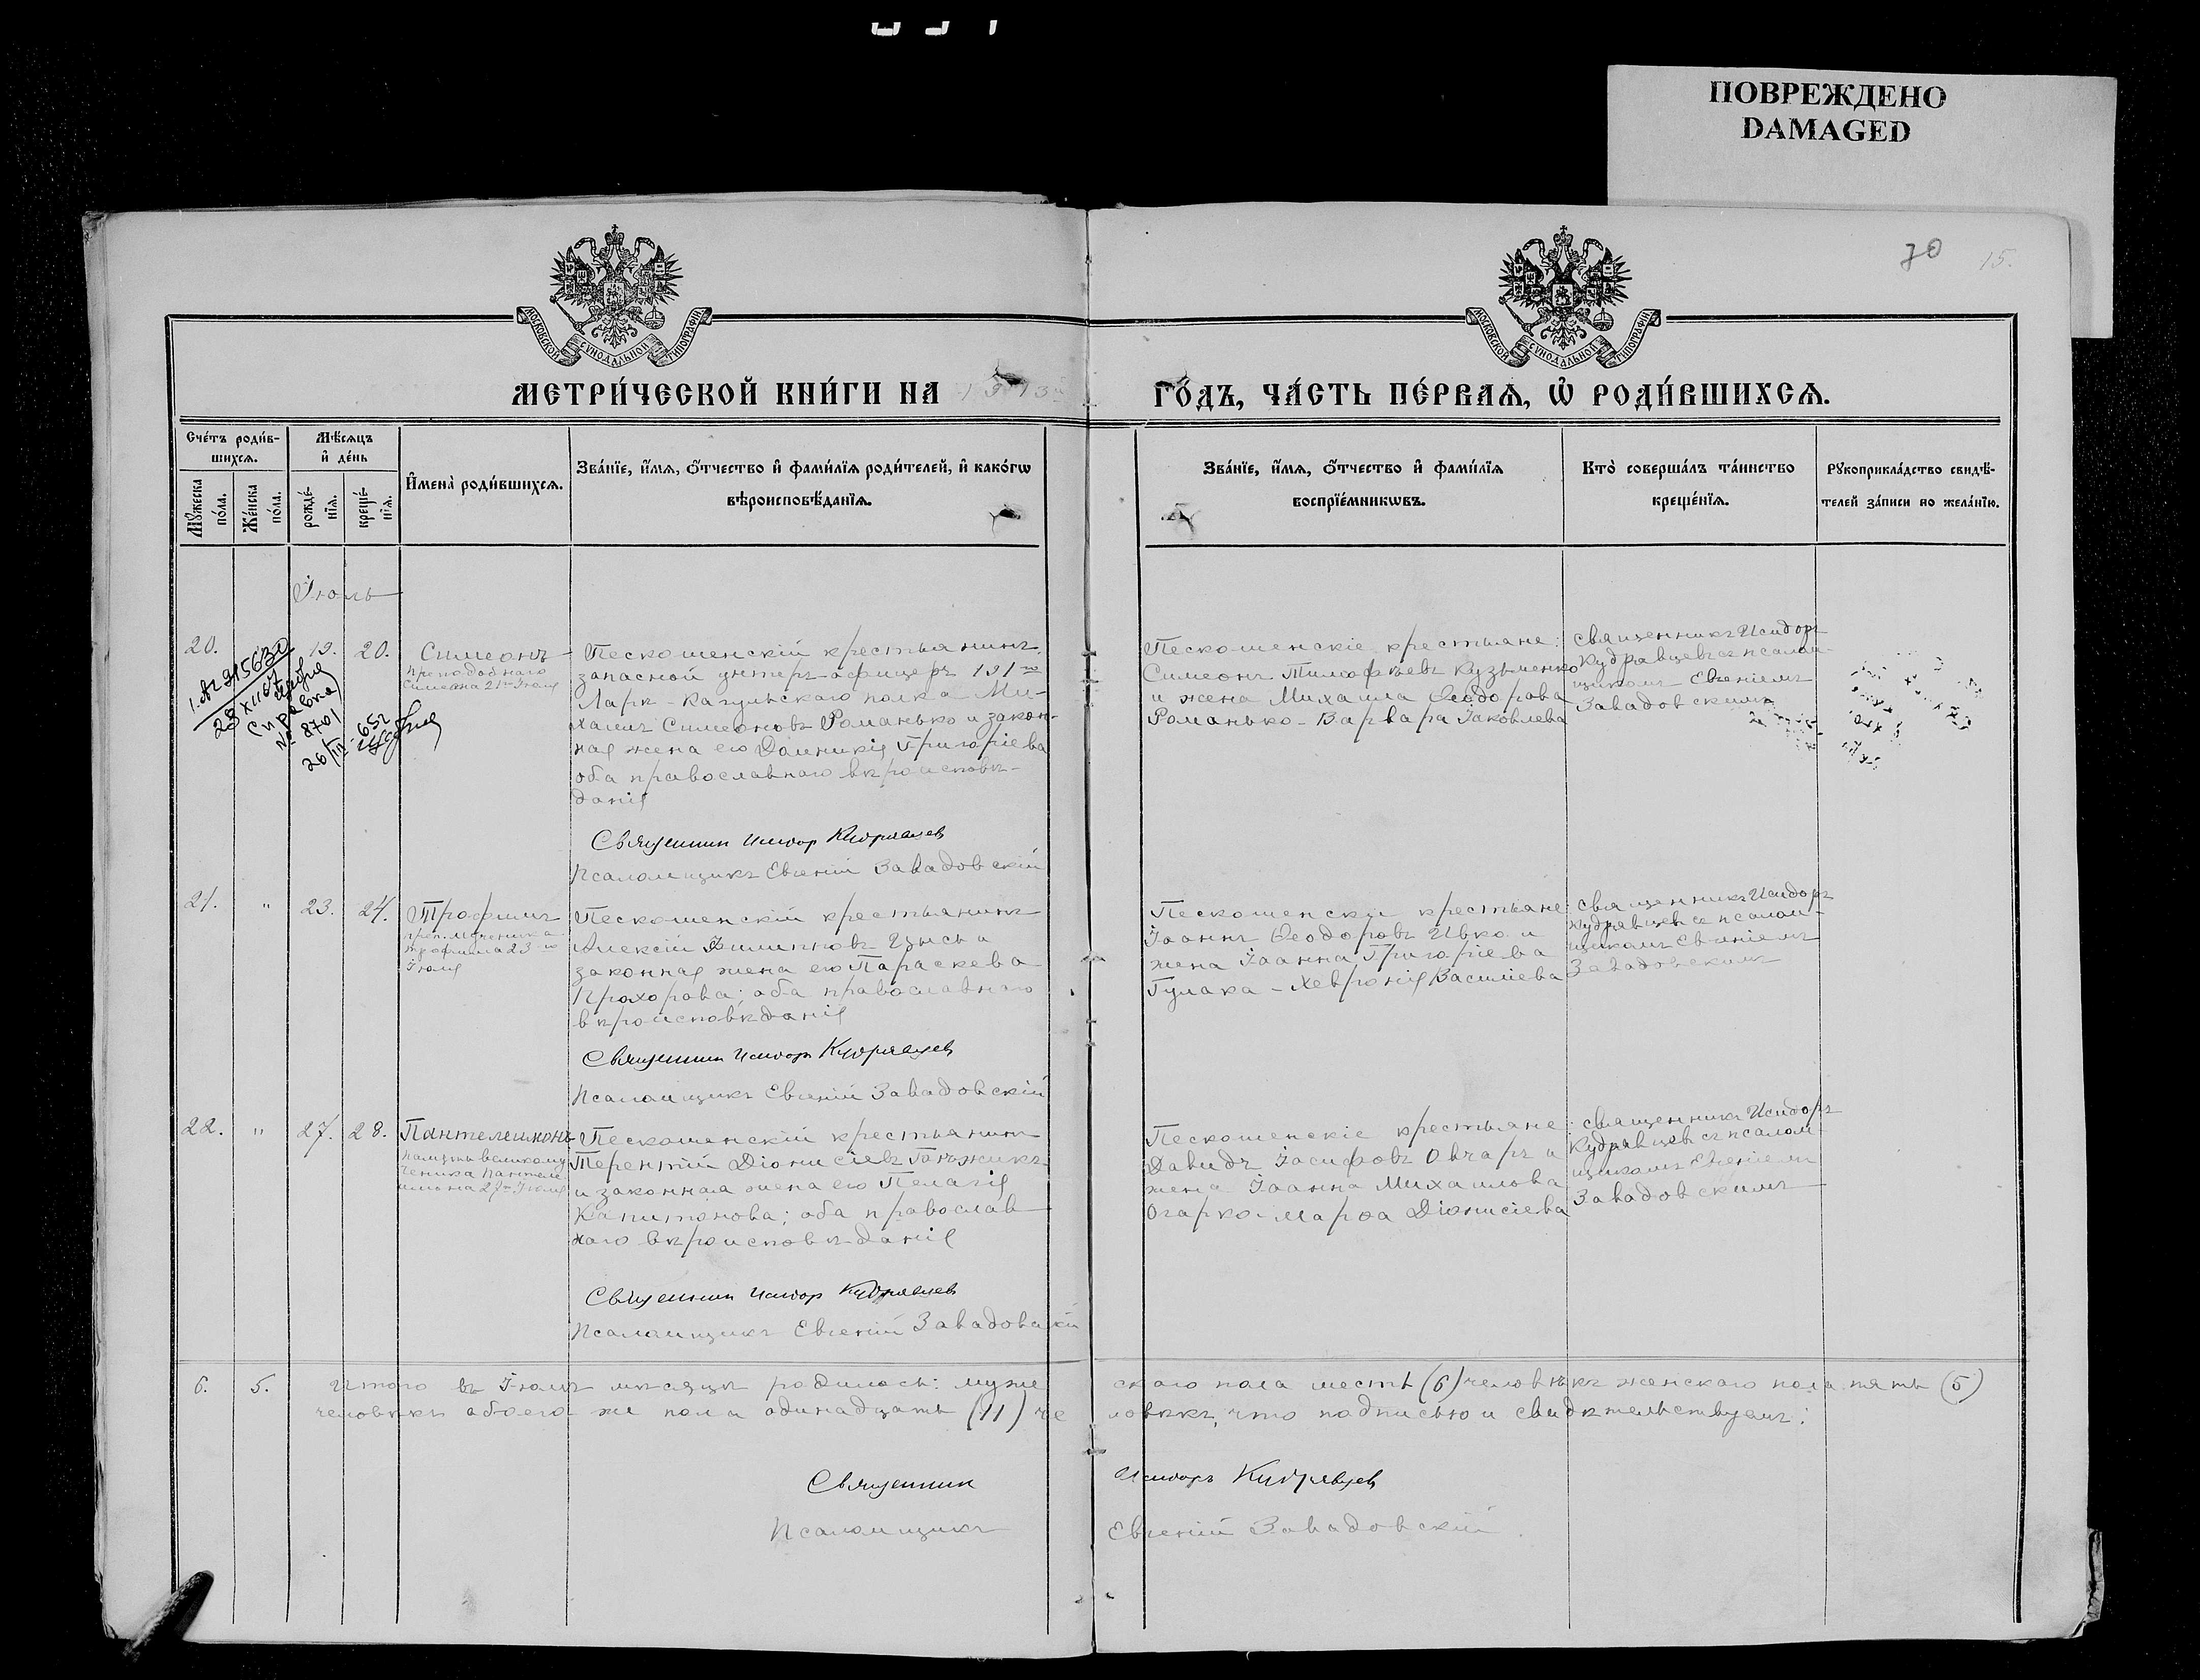 ПОВРЕЖДЕНО
DAMAGED
70 15.
МОСКОВСКОЙ СУНОДАЛЬНОЙ ТИПОГРАФІИ
МОСКОВСКОЙ СУНОДАЛЬНОЙ ТИПОГРАФІИ
МЕТРИ́ЧЕСКОЙ КНИ́ГИ НА 1913
ГО́ДЪ, ЧА́СТЬ ПЕ́РВАѦ, Ѡ҆ РОДИ́ВШИХСѦ.
Сче́тъ роди́в-
шихсѧ.
Мѣ́сѧцъ
и҆ де́нь
Мꙋ́жеска
по́ла.
Же́нска
по́ла.
рожде́-
нїѧ.
креще́-
нїѧ.
И҆мена̀ роди́вшихсѧ.
Зва́нїе, и҆́мѧ, ѻ҆́тчество и҆ фами́лїѧ роди́телей, и҆ како́гѡ
вѣроисповѣ́данїѧ.
Зва́нїе, и҆́мѧ, ѻ҆́тчество и҆ фами́лїѧ
воспрїе́мникѡвъ.
Кто̀ соверша́лъ та́инство
креще́нїѧ.
Рꙋкоприкла́дство свидѣ́-
телей за́писи по жела́нїю.
Іюль
20. 19. 20. Симеонъ
преподобнаго
Симеона 21го Іюля
Справка
№ 8701
Пескошенскій крестьянинъ,
запасной унтеръ-офицеръ 191го
Ларг-Кагульскаго полка Ми-
хаилъ Симеоновъ Романько и закон-
ная жена его Домникія Григоріева
оба православнаго вѣроисповѣ-
данія
Священник Исидор Кудрявцев
Псаломщикъ Евгеній Завадовскій
Пескошенскіе крестьяне:
Симеонъ Тимофѣевъ Кузьменко
и жена Михаила Ѳеодорова
Романько-Варвара Іаковлева
священникъ Исидоръ
Кудрявцевъ съ псалом-
щикомъ Евгеніемъ
Завадовскимъ
21. " 23. 24. Трофимъ
преп. Мученика
Трофима 23го
Іюля
Пескошенскій крестьянинъ
Алексій Филипповъ Цысь и
законная жена его Параскева
Прохорова; оба православнаго
вѣроисповѣданія
Священник Исидоръ Кудрявцев
Псаломщикъ Евгеній Завадовскій
Пескошенскіе крестьяне:
Іоаннъ Ѳеодоровъ Ивко и
жена Іоанна Григоріева
Гулака-Хевронія Василіева
священникъ Исидоръ
Кудрявцевъ съ псалом-
щикомъ Евгеніемъ
Завадовскимъ
22. " 27. 28. Пантелеимонъ
память великому-
ченика Пантеле-
имона 27го Іюля
Пескошенскій крестьянинъ
Терентій Діонисіевъ Ганжикъ
и законная жена его Пелагія
Капитонова; оба православ
наго вѣроисповѣданія
Священник Исидор Кудрявцев
Псаломщикъ Евгеній Завадовскій
Пескошенскіе крестьяне:
Давидъ Іосифовъ Овчаръ и
жена Іоанна Михаилова
Огарко-Марѳа Діонисіева
священникъ Исидоръ
Кудрявцевъ съ псалом-
щикомъ Евгеніемъ
Завадовскимъ
6. 5. Итого въ Іюлѣ мѣсяцѣ родилось: муже скаго пола шесть (6) человѣкъ женскаго пола пять (5)
человѣкъ обоего же пола одинадцать (11) че ловѣкъ, что подписью и свидѣтельствуемъ:
Священник Исидоръ Кудрявцев
Псаломщикъ Евгеній Завадовскій.